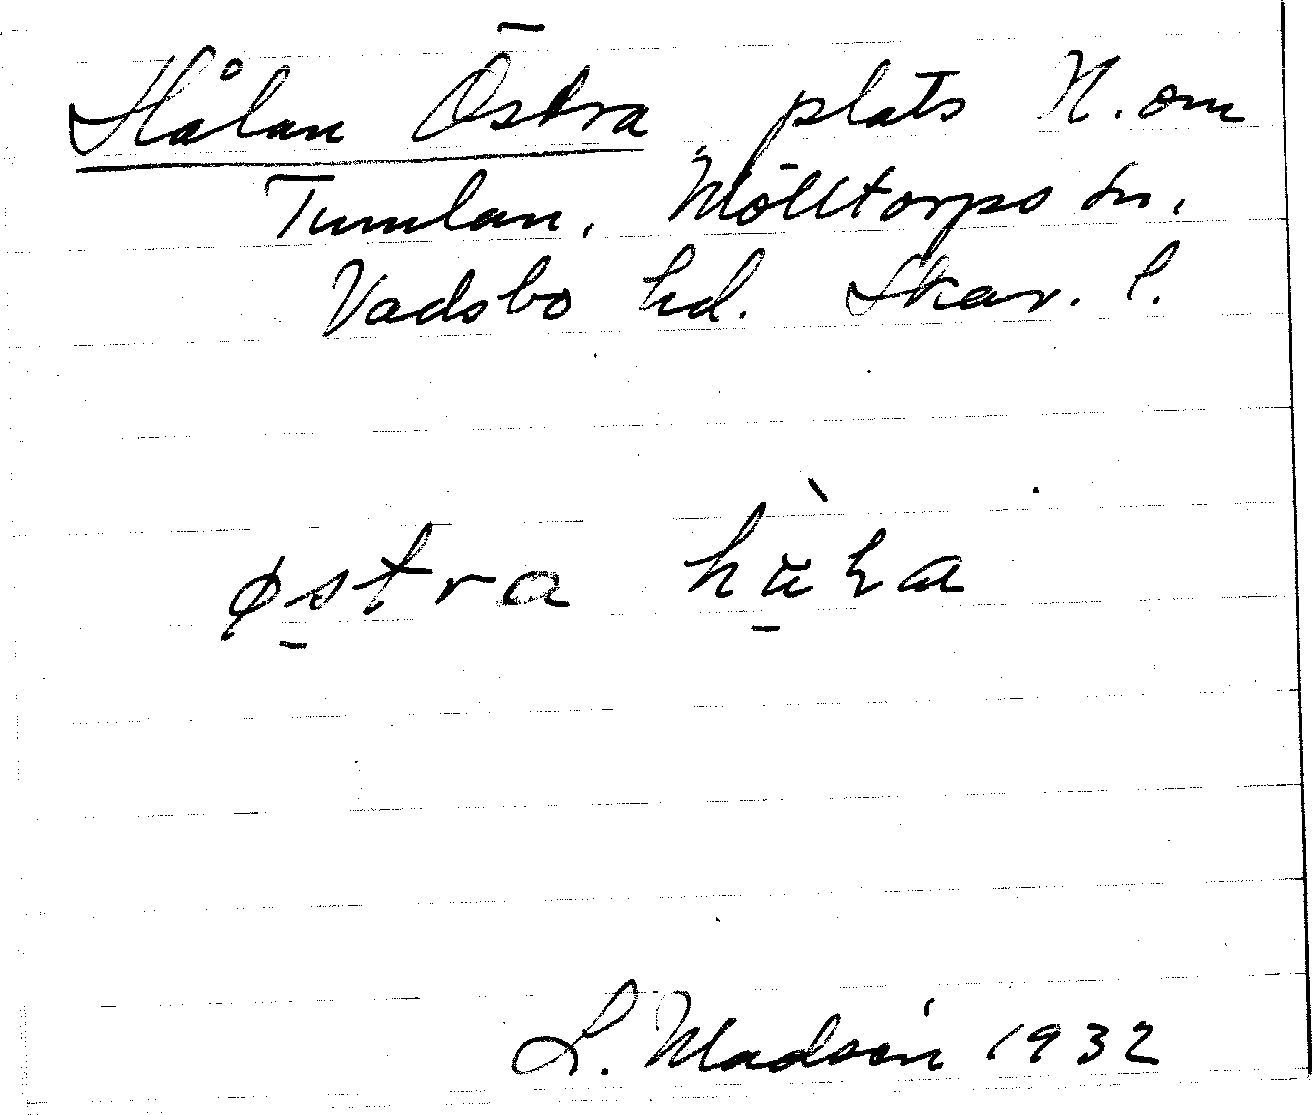 Hålan Östra plats N. om
Tumlan, Mölltorps sn,
Vadsbo hd. Skar. l.
østra
L. Madsén 1932